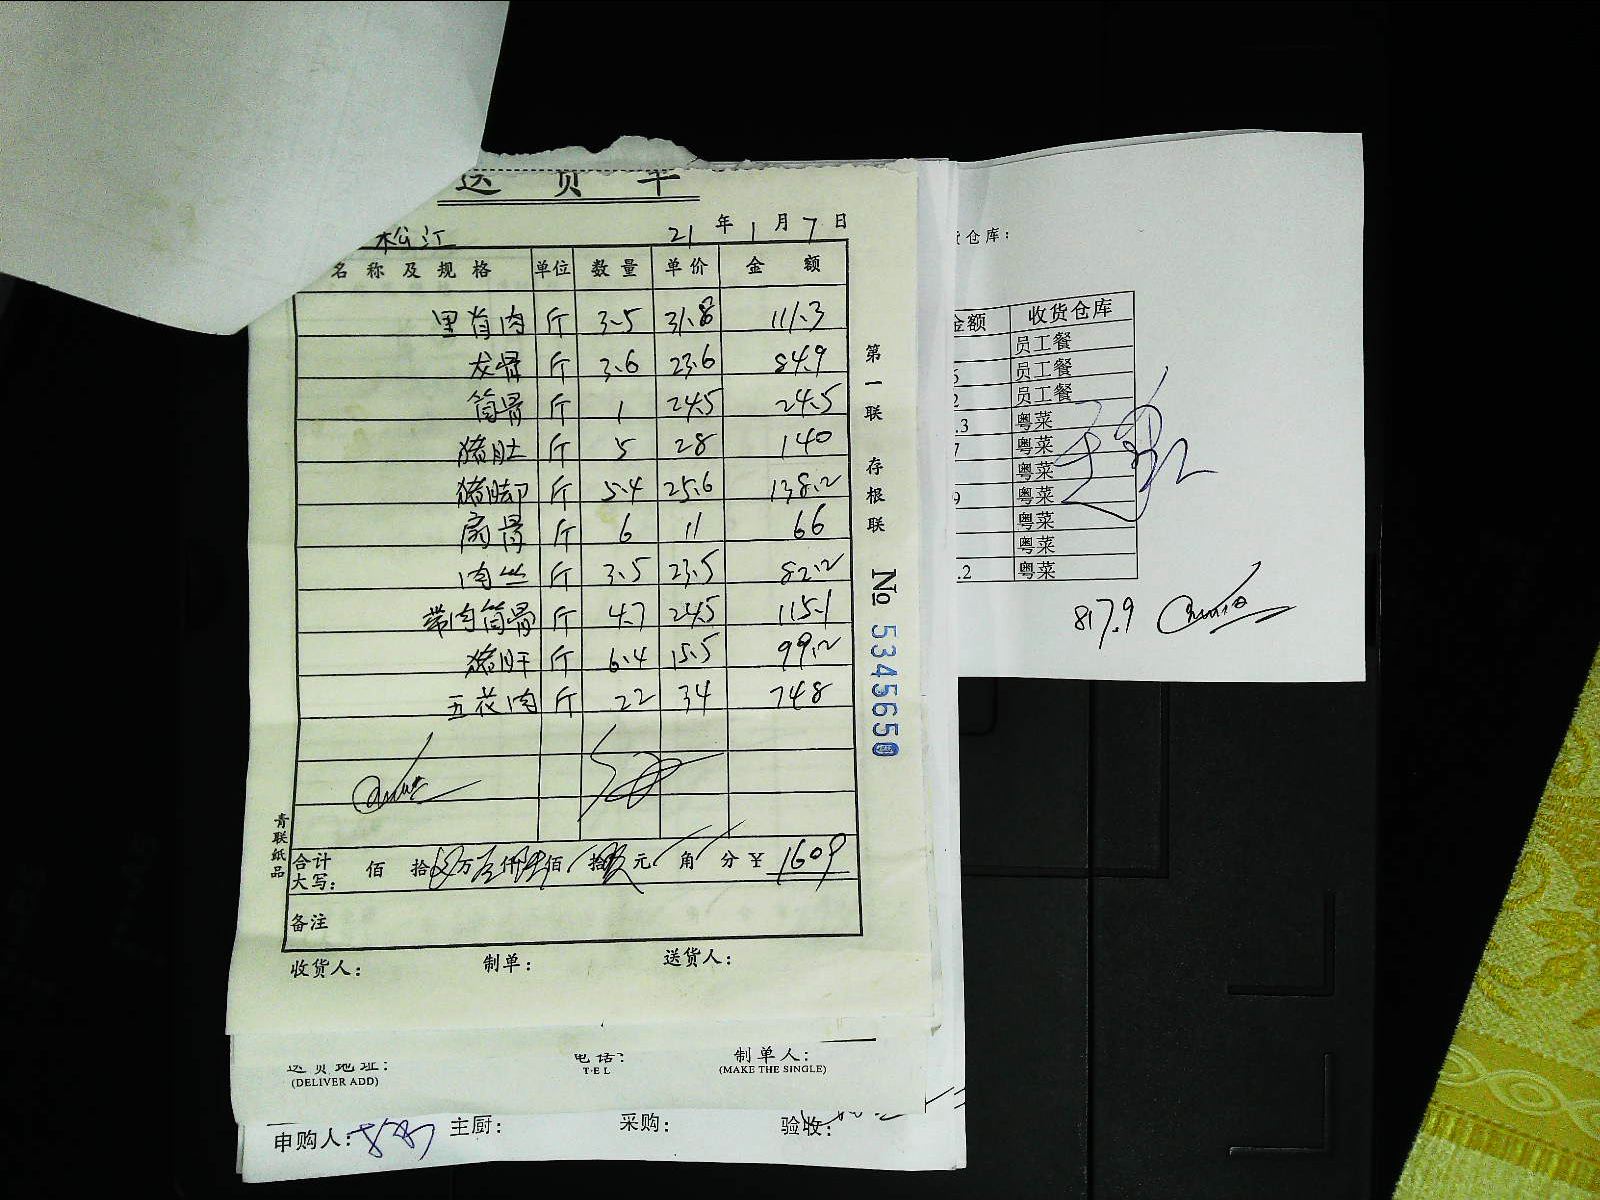 送货单
松江
21年1月7日
名称及规格 单位 数量 单价 金额
里脊肉 斤 3.5 31.8 111.3
龙骨 斤 3.6 23.6 84.9
筒骨 斤 1 24.5 24.5
猪肚 斤 5 28 140
猪脚 斤 5.4 25.6 138.2
扇骨 斤 6 11 66
肉丝 斤 3.5 23.5 82.2
带肉筒骨 斤 4.7 24.5 115.1
猪肝 斤 6.4 15.5 99.2
五花肉 斤 22 34 748
合计
大写: 佰 拾 万 仟 佰 拾 元 角 分 ¥ 1609
备注
收货人: 制单: 送货人:
第一联 存根联
No 5345650
青联纸品
送货地址: 电话: 制单人:
(DELIVER ADD) TEL (MAKE THE SINGLE)
申购人: 主厨: 采购: 验收:
仓库:
金额 收货仓库
员工餐
员工餐
2 员工餐
.3 粤菜
7 粤菜
粤菜
9 粤菜
粤菜
粤菜
.2 粤菜
817.9